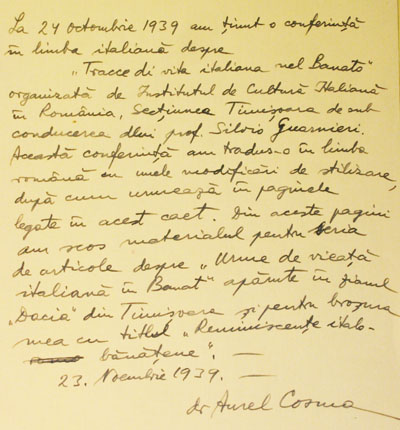 La 24 octombrie 1939 am ținut o conferință
în limba italiană despre
„Tracce di vita italiana nel Banato"
organizată de Institutul de Cultură Italiană
în România, Secțiunea Timișoara de sub
conducerea dlui prof. Silvio Guarnieri.
Această conferință am tradus-o în limba
română cu unele modificări de stilizare,
după cum urmează în paginele
legate în acest caet. Din aceste pagini
am scos materialul pentru seria
de articole despre „Urme de vieață
italiană în Banat" apărute în ziarul
„Dacia" din Timișoara și pentru broșura
mea cu titlul „Reminiscențe italo-
bănățene". —
23. Noembrie 1939. —
dr Aurel Cosma